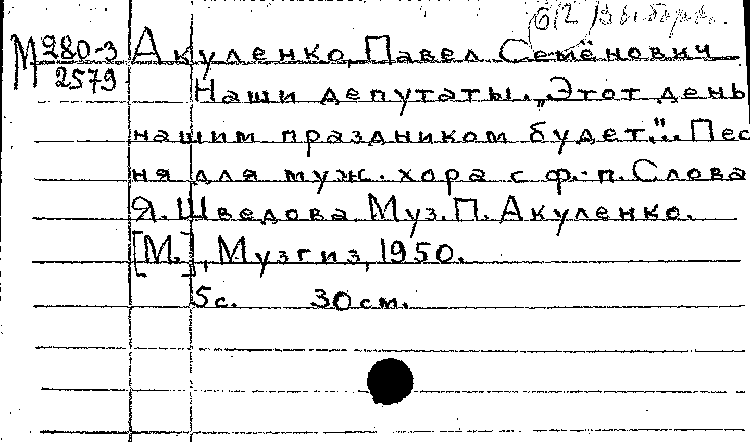 612 Выборы.
М 280-3 Акуленко, Павел Семёнович
2579 Наши депутаты. „Этот день
нашим праздником будет.".. Пес
ня для муж. хора с ф.-п. Слова
Я. Шведова Муз. П. Акуленко.
[М.], Музгиз, 1950.
5с. 30см.